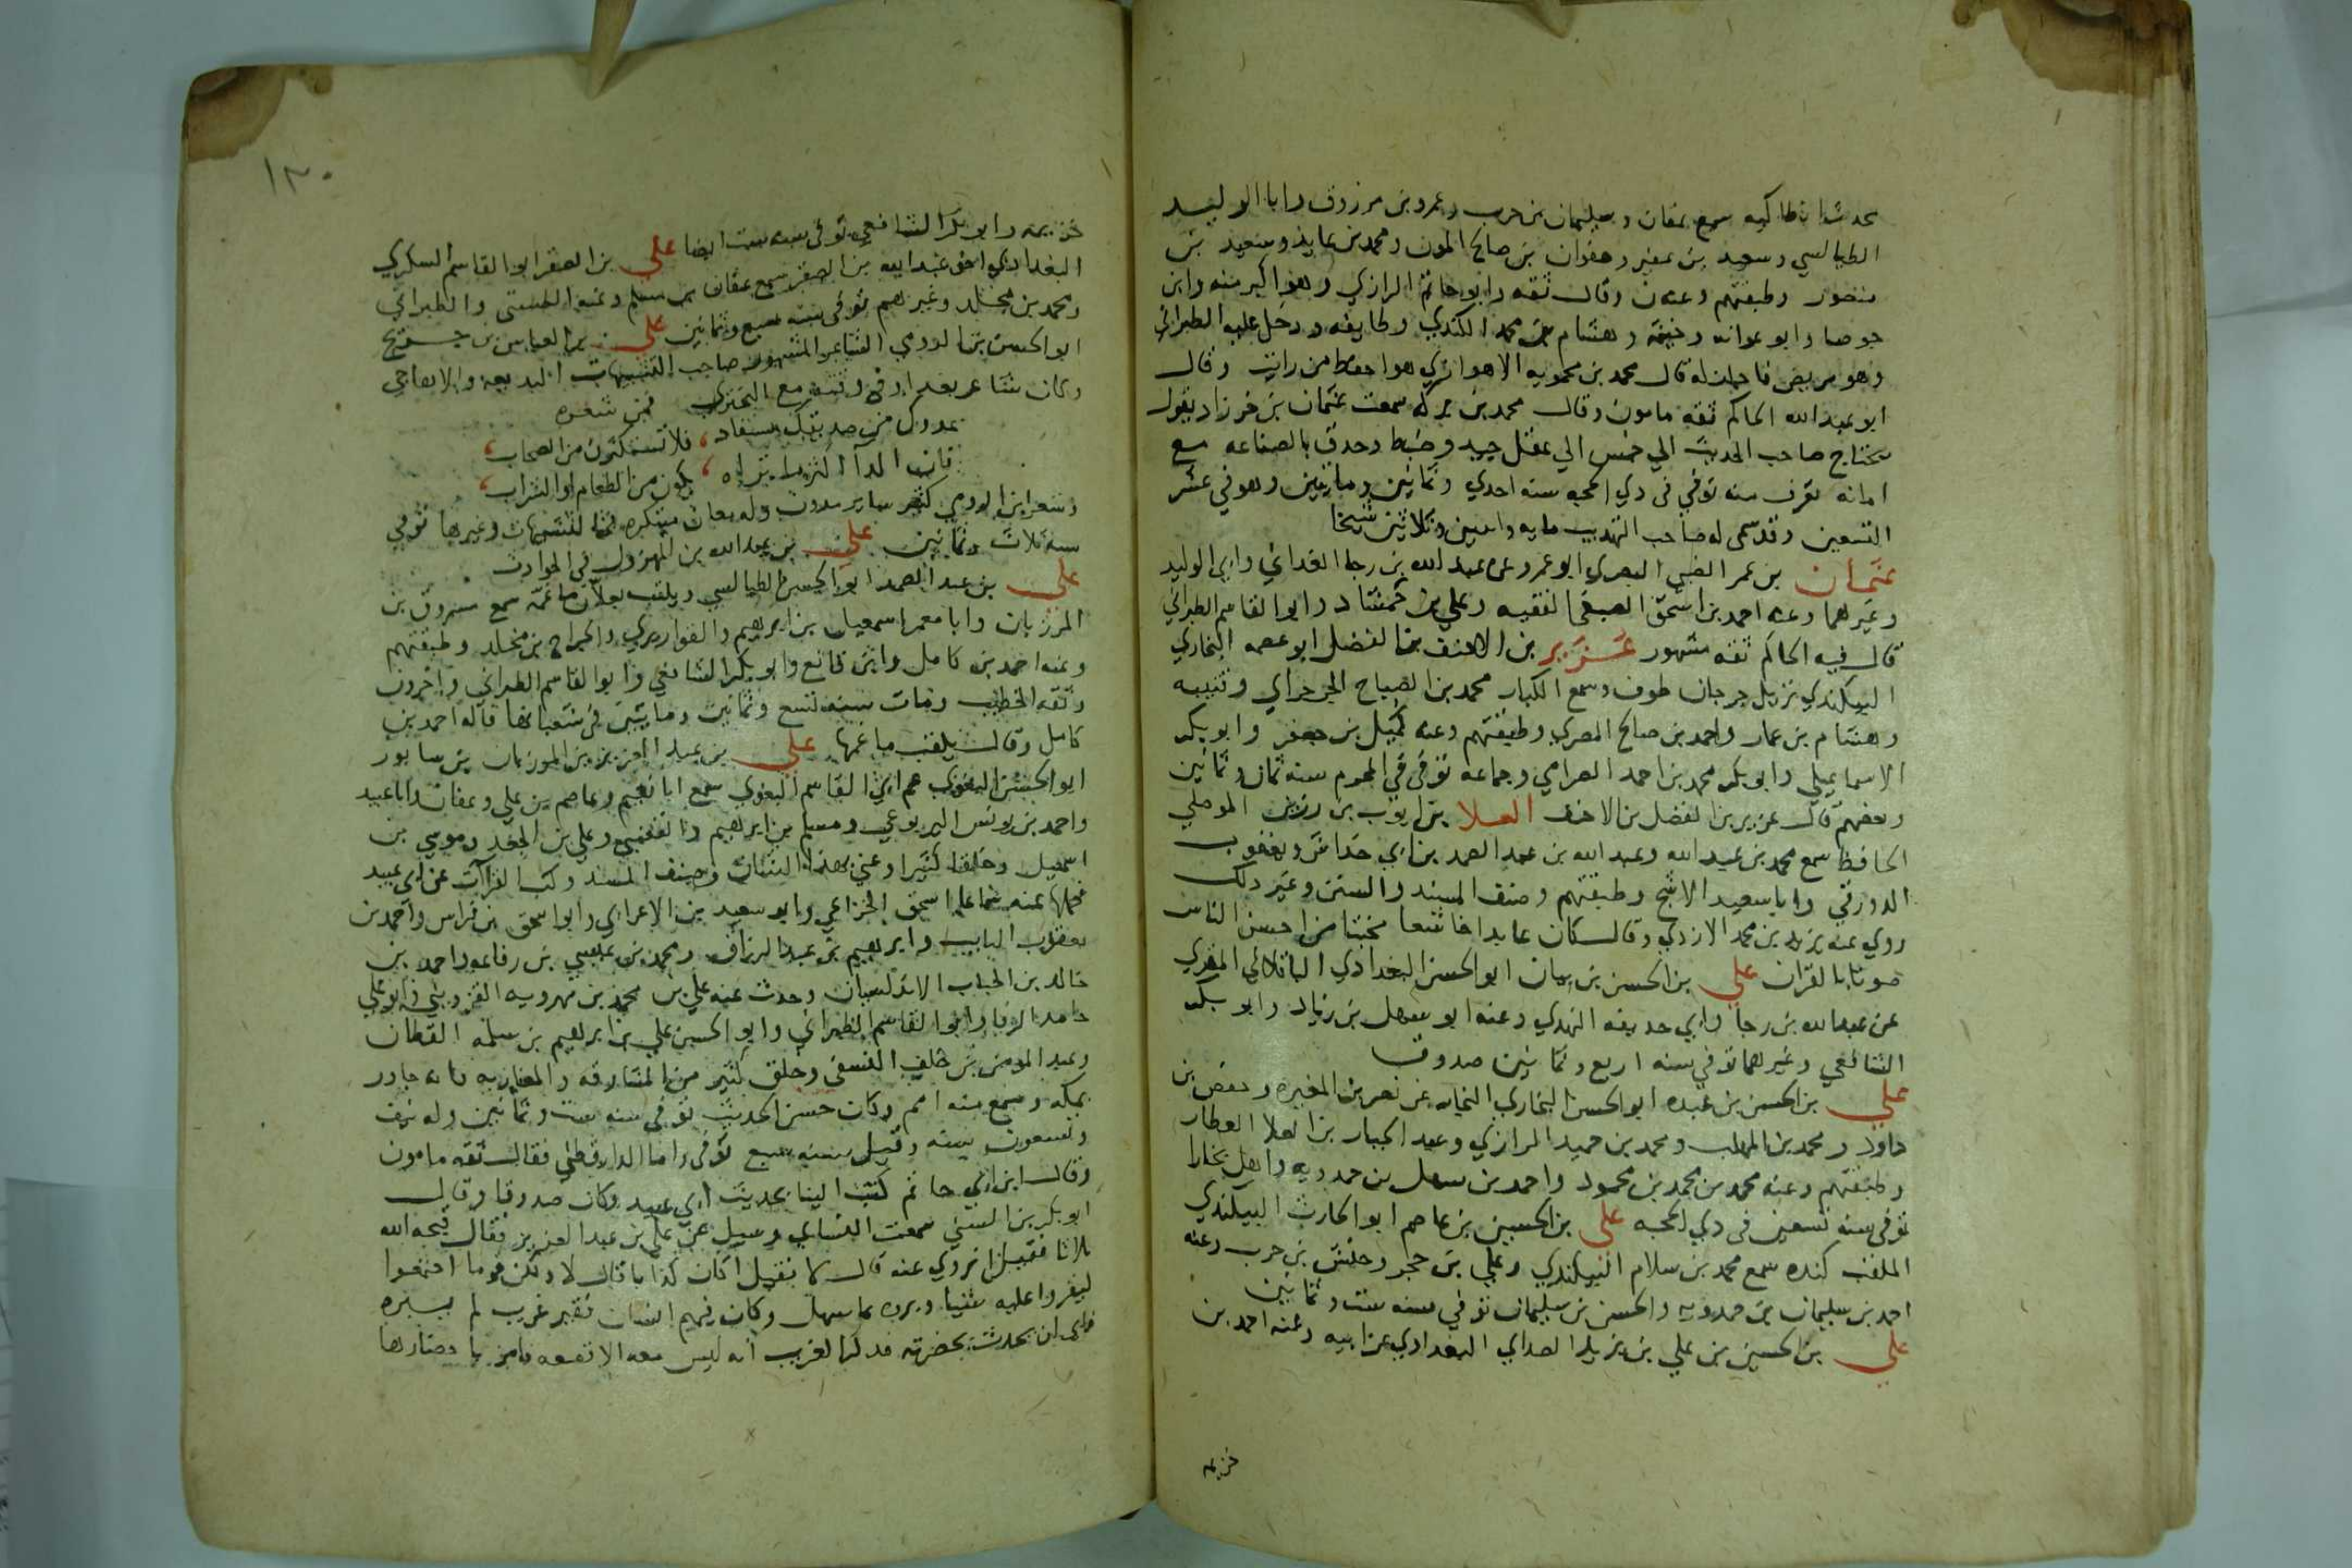 محدث انطاكيه سمع عفان وسليمان بن حرب وعمرو بن مرزوق وابا الوليد
الطيالسي وسعيد بن عفير وصفوان بن صالح المودن ومحمد بن عايذ وسعيد بن
منصور وطبقتهم وعنه ن وقال ثقه وابو حاتم الرازي وهو اكبر منه وابن
جوصا وابو عوانه وخيثمه وهشام بن محمد الكندي وطايفه ودخل عليه الطبراني
وهو مريض فاجاز له قال محمد بن محمويه الاهوازي هو احفظ من رايت وقال
ابو عبد الله الحاكم ثقه مامون وقال محمد بن بركه سمعت عثمان بن خرزاد يقول
يحتاج صاحب الحديث الي خمس الي عقل جيد وضبط وحذق بالصناعه مع
امانه تعرف منه توفي في ذي الحجه سنه احدي وثمانين وماتين وهو في عشر
التسعين وقد سمي له صاحب التهذيب مايه واثنين وثلاثين شيخا
عثمان بن عمر الضبي البصري ابو عمرو عن عبد الله بن رجا الغداني وابي الوليد
وغيرهما وعنه احمد بن اسحق الصبغي الفقيه وعلي بن حمشاد وابو القاسم الطبراني
قال فيه الحاكم ثقه مشهور عزيز بن الاحنف بن الفضل ابو عصمه البخاري
البيكندي نزيل جرجان طوف وسمع الكبار محمد بن الصباح الجرجراي وقتيبه
وهشام بن عمار واحمد بن صالح المصري وطبقتهم وعنه كميل بن جعفر وابو بكر
الاسماعيلي وابو بكر محمد بن احمد الصرامي وجماعه توفي في المحرم سنه ثمان وثمانين
وبعضهم قال عزيز بن الفضل بن الاحنف العلا بن ايوب بن رزين الموصلي
الحافظ سمع محمد بن عبد الله وعبد الله بن عبد الصمد بن ابي خداش ويعقوب
الدورقي وابا سعيد الاشج وطبقتهم وصنف المسند والسنن وغير ذلك
روي عنه يزيد بن محمد الازدي وقال كان عابدا خاشعا مخبتا من احسن الناس
صوتا بالقران علي بن الحسن بن بيان ابو الحسن البغدادي الباقلاني المقري
عن عبد الله بن رجا وابي حذيفه النهدي وعنه ابو سهل بن زياد وابو بكر
الشافعي وغيرهما توفي سنه اربع وثمانين صدوق
علي بن الحسن بن عبده ابو الحسن البخاري النجار عن نصر بن المغيره وحفص بن
داود ومحمد بن المهلب ومحمد بن حميد الرازي وعبد الجبار بن العلا العطار
وطبقتهم وعنه محمد بن محمد بن محمود واحمد بن سهل بن حمدويه واهل بخارا
توفي سنه تسعين في ذي الحجه علي بن الحسين بن عاصم ابو الحارث البيكندي
الملقب كنده سمع محمد بن سلام البيكندي وعلي بن حجر وحنش بن حرب وعنه
احمد بن سليمان بن حمدويه والحسن بن سليمان توفي سنه ست وثمانين
علي بن الحسين بن علي بن يزيد الصداي البغدادي عن ابيه وعنه احمد بن
خزيمه
١٣٠
خزيمه وابو بكر الشافعي توفي سنه ست ايضا علي بن الصقر ابو القاسم السكري
البغدادي اخو عبد الله بن الصقر سمع عفان بن مسلم وعنه الطستي والطبراني
ومحمد بن مخلد وغيرهم توفي سنه سبع وثمانين علي بن العباس بن جريج
ابو الحسن بن الرومي الشاعر المشهور صاحب التشبيهات البديعه والاهاجي
وكان شاعر بغداد في وقته مع البحتري فمن شعره
عدوك من صديقك مستفاد، فلا تستكثرن من الصحاب،
فان الداء اكثر ما تراه، يكون من الطعام او الشراب،
وشعر ابن الرومي كثير ساير مدون وله معان مبتكره التشبيهات وغيرها توفي
سنه ثلاث وثمانين علي بن عبد الله بن المهزول في الحوادث
علي بن عبد الصمد ابو الحسن الطيالسي ويلقب بعلان ماغمه سمع مسروق بن
المرزبان وابا معمر اسمعيل بن ابرهيم والقواريري والجراح بن مخلد وطبقتهم
وعنه احمد بن كامل وابن قانع وابو بكر الشافعي وابو القاسم الطبراني واخرون
وثقه الخطيب ومات سنه تسع وثمانين ومايتين في شعبانها قاله احمد بن
كامل وقال يلقب ماغمها علي بن عبد العزيز بن المرزبان بن سابور
ابو الحسن البغوي عم ابي القاسم البغوي سمع ابا نعيم وعاصم بن علي وعفان وابا عبيد
واحمد بن يونس اليربوعي ومسلم بن ابرهيم والقعنبي وعلي بن الجعد وموسي بن
اسمعيل وخلقا كثيرا وعني بهذا الشان وصنف المسند وكتب القراآت عن ابي عبيد
فحملها عنه سماعا اسحق الخزاعي وابو سعيد بن الاعرابي وابو اسحق بن فراس واحمد بن
يعقوب السايب وابرهيم بن عبد الرزاق ومحمد بن عيسي بن رفاعه واحمد بن
خالد بن الحباب الاندلسيان وحدث عنه علي بن محمد بن مهرويه القزويني وابو علي
حامد الرفا وابو القاسم الطبراني وابو الحسن علي بن ابرهيم بن سلمه القطان
وعبد المومن بن خلف النسفي وخلق كثير من المشارقه والمغاربه فانه جاور
بمكه وسمع منه امم وكان حسن الحديث توفي سنه ست وثمانين وله نيف
وتسعون سنه وقيل سنه سبع توفي واما الدارقطني فقال ثقه مامون
وقال ابن ابي حاتم كتب الينا بحديث ابي عبيد وكان صدوقا وقال
ابو بكر بن السني سمعت النساي وسيل عن علي بن عبد العزيز فقال قبحه الله
ثلاثا فقيل اتروي عنه قال لا فقيل اكان كذابا قال لا ولكن قوما اجتمعوا
ليقروا عليه شيئا وبروه بما سهل وكان فيهم انسان فقير غريب لم يبره
فابي ان يحدث بحضرته فذكر الغريب انه ليس معه الا قصعه فامره باحضارها